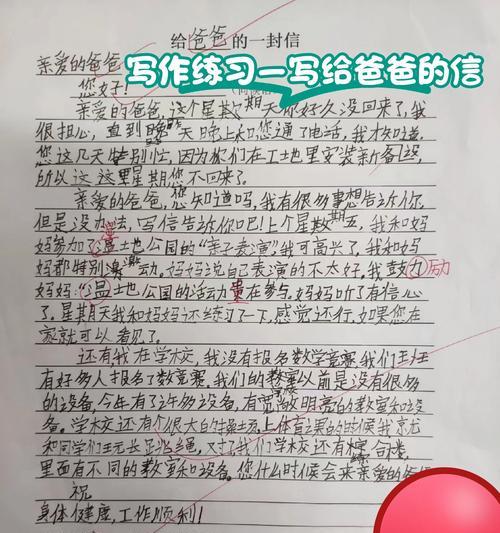 给爸爸的一封信
写作练习—写给爸爸的信
亲爱的爸爸
您好！
亲爱的爸爸，这个星期天你好久没回来了，我
很担心，直到昨天晚上和您通了电话，我才知道，
您这几天特别忙，因为你们在工地里安装新备设，
所以这这里星期您不回来了。
亲爱的爸爸，您知道吗，我有很多事想告诉你，
但是没办法，写信告诉你吧！上个星期五，我和妈
妈参加了温土地公园的“亲子表演”，我可高兴了，我和妈
妈都特别激动。妈妈说自己表演的不太好，我鼓力励
妈妈：“温土地公园的活动重在参与。妈妈听了有信心
了。星期天我和妈妈还练习了一下，感觉还行，如果您在
家就可以看见了。
还有我在学校，我没有报名数学竞赛，我们班
有好多人报名了数竞赛。我们的教室以前是没有很多
的设备，今年有了许多设备，有宽敞明亮的教室和设
备。学校还有个很大的
和同学们玩长绳，对了我们学校还有综合楼，
里面有不同的教室和设备。您什么时候会来亲爱的爸爸
祝
身体健康，工作顺利！